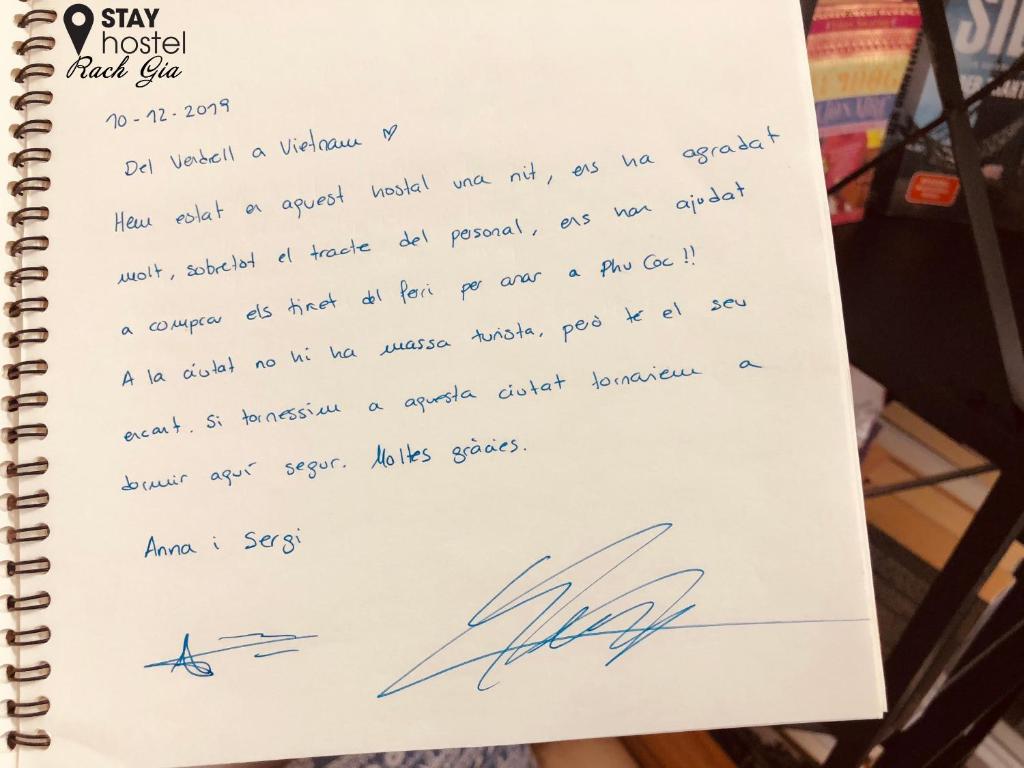 STAY
hostel
Rach Gia
10-12-2019
Del Vendrell a Vietnam
Hem estat en aquest hostal una nit, ens ha agradat
molt, sobretot el tracte del personal, ens han ajudat
a comprar els tiket del ferri per anar a Phu Coc!!
A la ciutat no hi ha massa turista, però te el seu
encant. Si tornessim a aquesta ciutat tornariem a
dormir aquí segur. Moltes gràcies.
Anna i Sergi